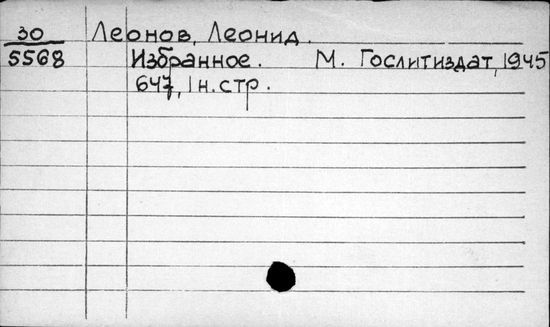 30 Леонов, Леонид.
5568 Избранное. М. Гослитиздат, 1945
647, 1 н. стр.